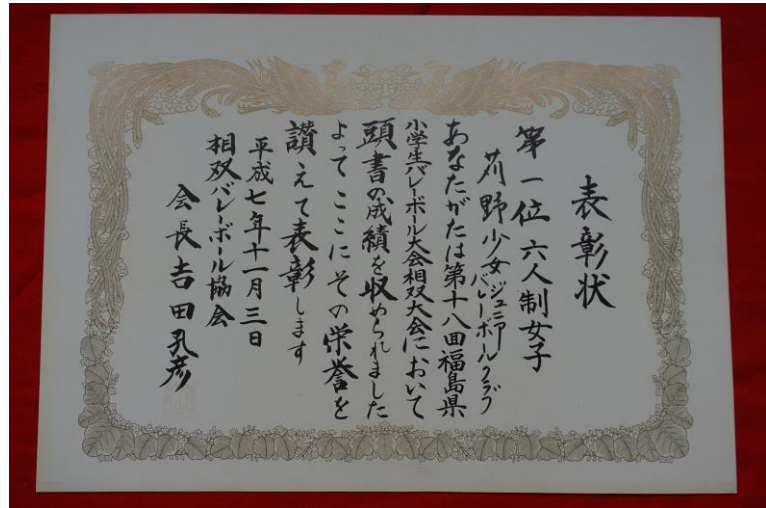 表彰状
第一位 六人制女子
苅野少女ジュニアバレーボールクラブ
あなたがたは第十八回福島県
小学生バレーボール大会相双大会において
頭書の成績を収められました
よってここにその栄誉を
讃えて表彰します
平成七年十一月三日
相双バレーボール協会
会長吉田孔彦